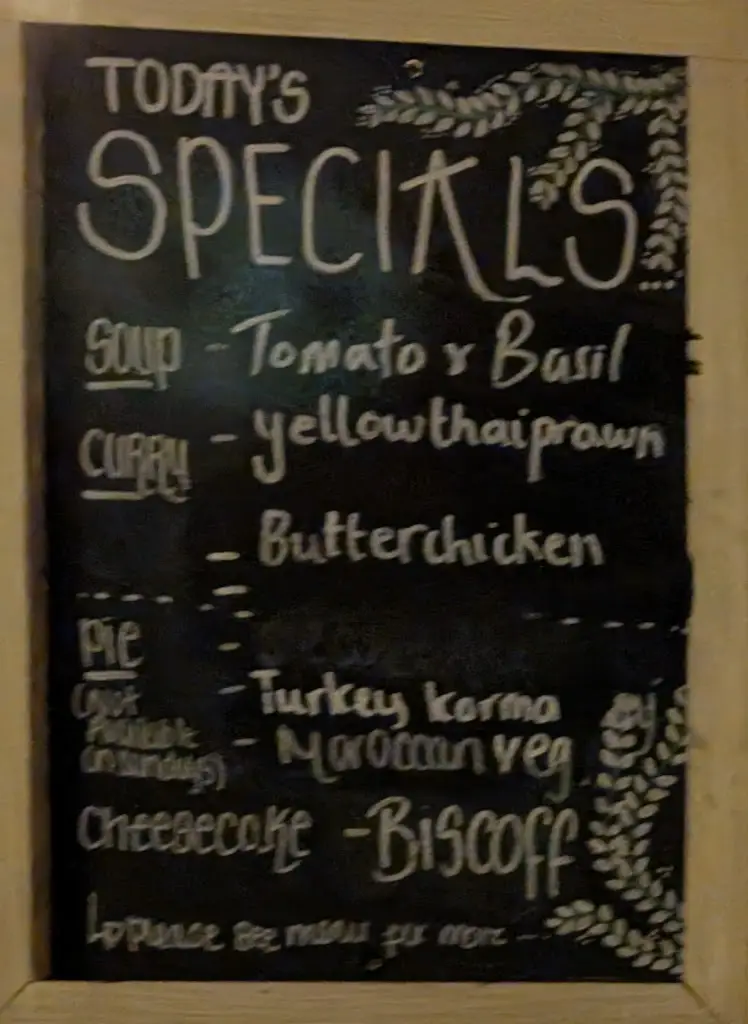 TODAY'S
SPECIALS...
SOUP - Tomato & Basil
CURRY - yellow thai prawn
- Butterchicken
PIE
(not
Available
on sundays)
- Turkey korma
- Moroccan veg
Cheesecake - Biscoff
please see menu for more